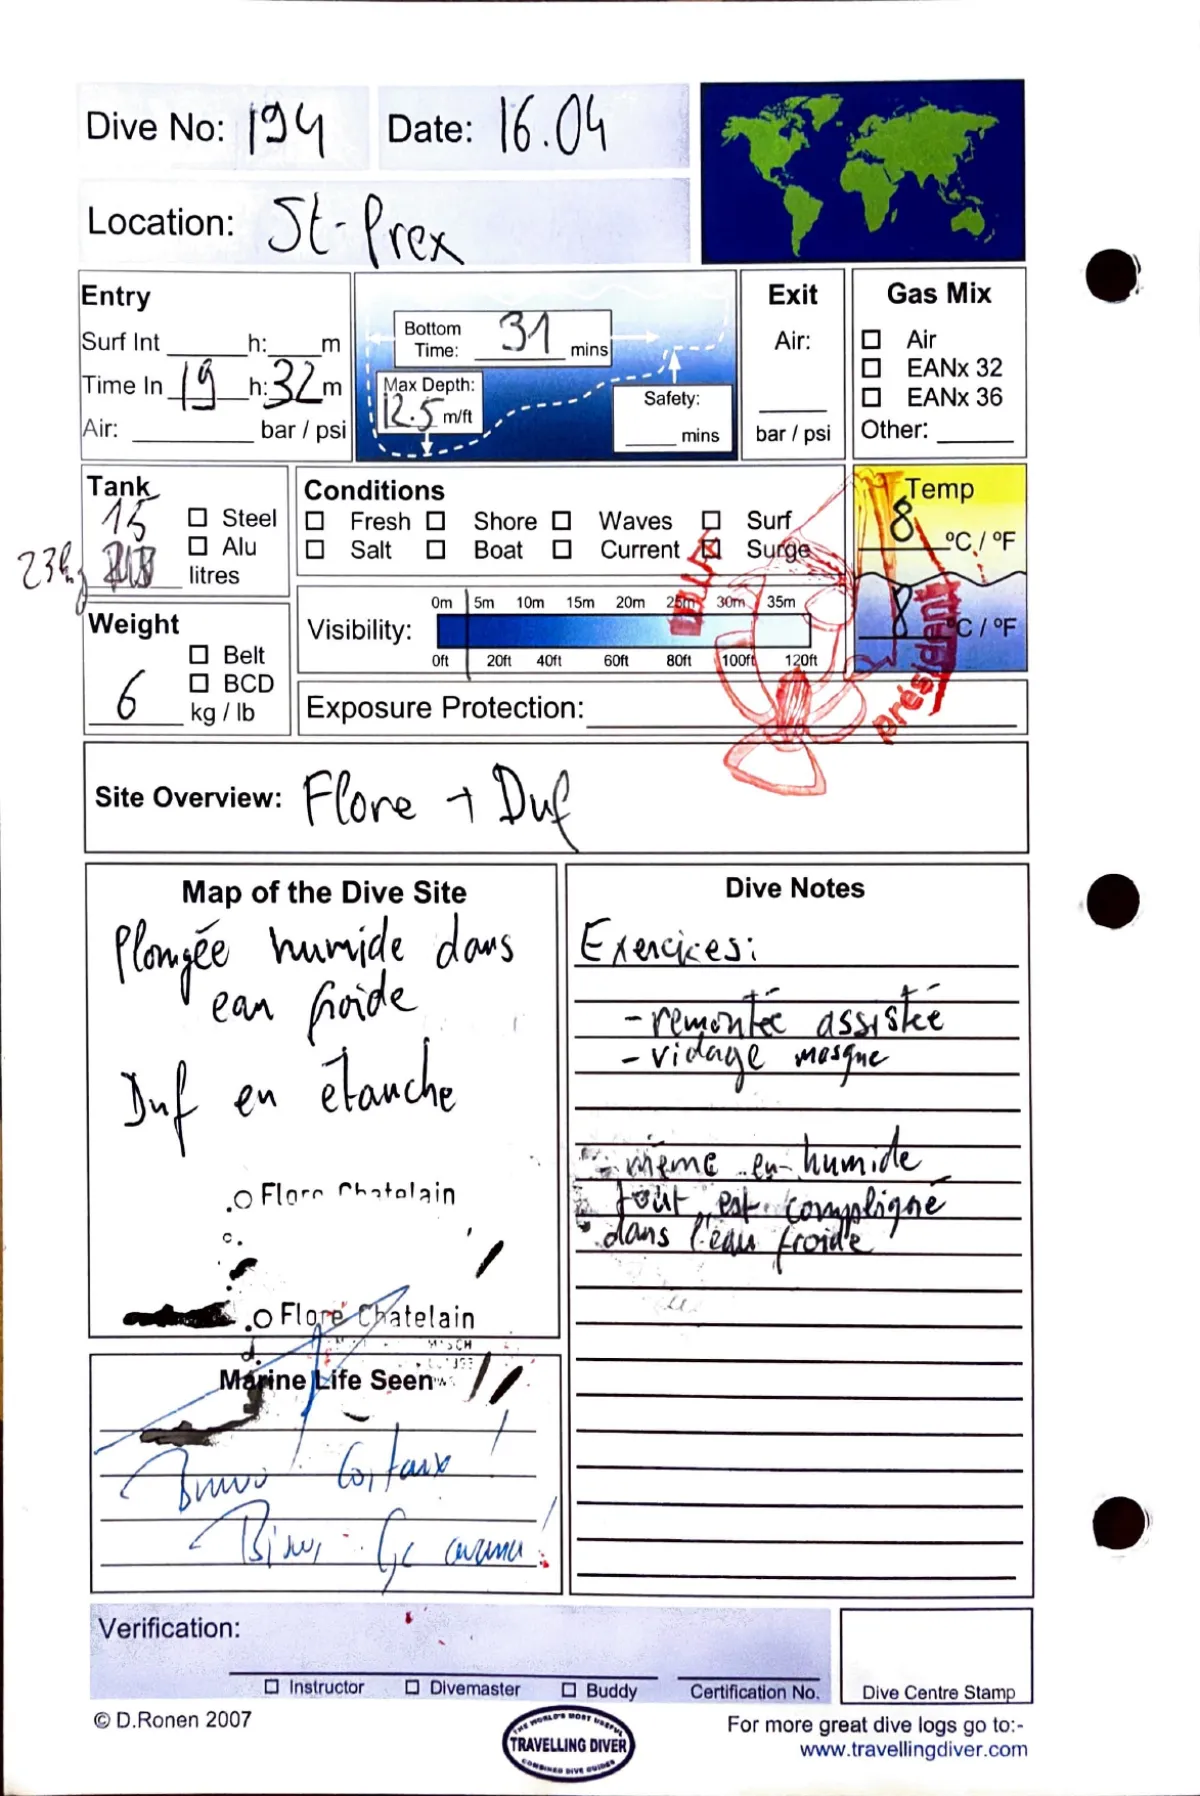 Dive No: 194
Date: 16.04
Location: St-Prex
Entry
Surf Int h: m
Time In 19 h: 32 m
Air: bar / psi
Bottom Time: 31 mins
Max Depth: 12.5 m/ft
Safety: mins
Exit
Air:
bar / psi
Gas Mix
Air
EANx 32
EANx 36
Other:
Tank
15
Steel
Alu
23kg
litres
Conditions
Fresh Shore Waves Surf
Salt Boat Current Surge
Temp
8 °C / °F
8 °C / °F
Weight
Belt
BCD
6 kg / lb
0m 5m 10m 15m 20m 25m 30m 35m
Visibility:
0ft 20ft 40ft 60ft 80ft 100ft 120ft
président
Exposure Protection:
Site Overview: Flore + Duf
Map of the Dive Site
Plongée humide dans
eau froide
Duf en étanche
Flore Chatelain
Flore Chatelain
Dive Notes
Exercices:
- remontée assistée
- vidage masque
- même en humide
tout est compliqué
dans l'eau froide
Marine Life Seen
Verification:
Instructor Divemaster Buddy Certification No.
Dive Centre Stamp
© D.Ronen 2007
THE WORLD'S MOST USEFUL
TRAVELLING DIVER
COMBINED DIVE GUIDES
For more great dive logs go to:-
www.travellingdiver.com